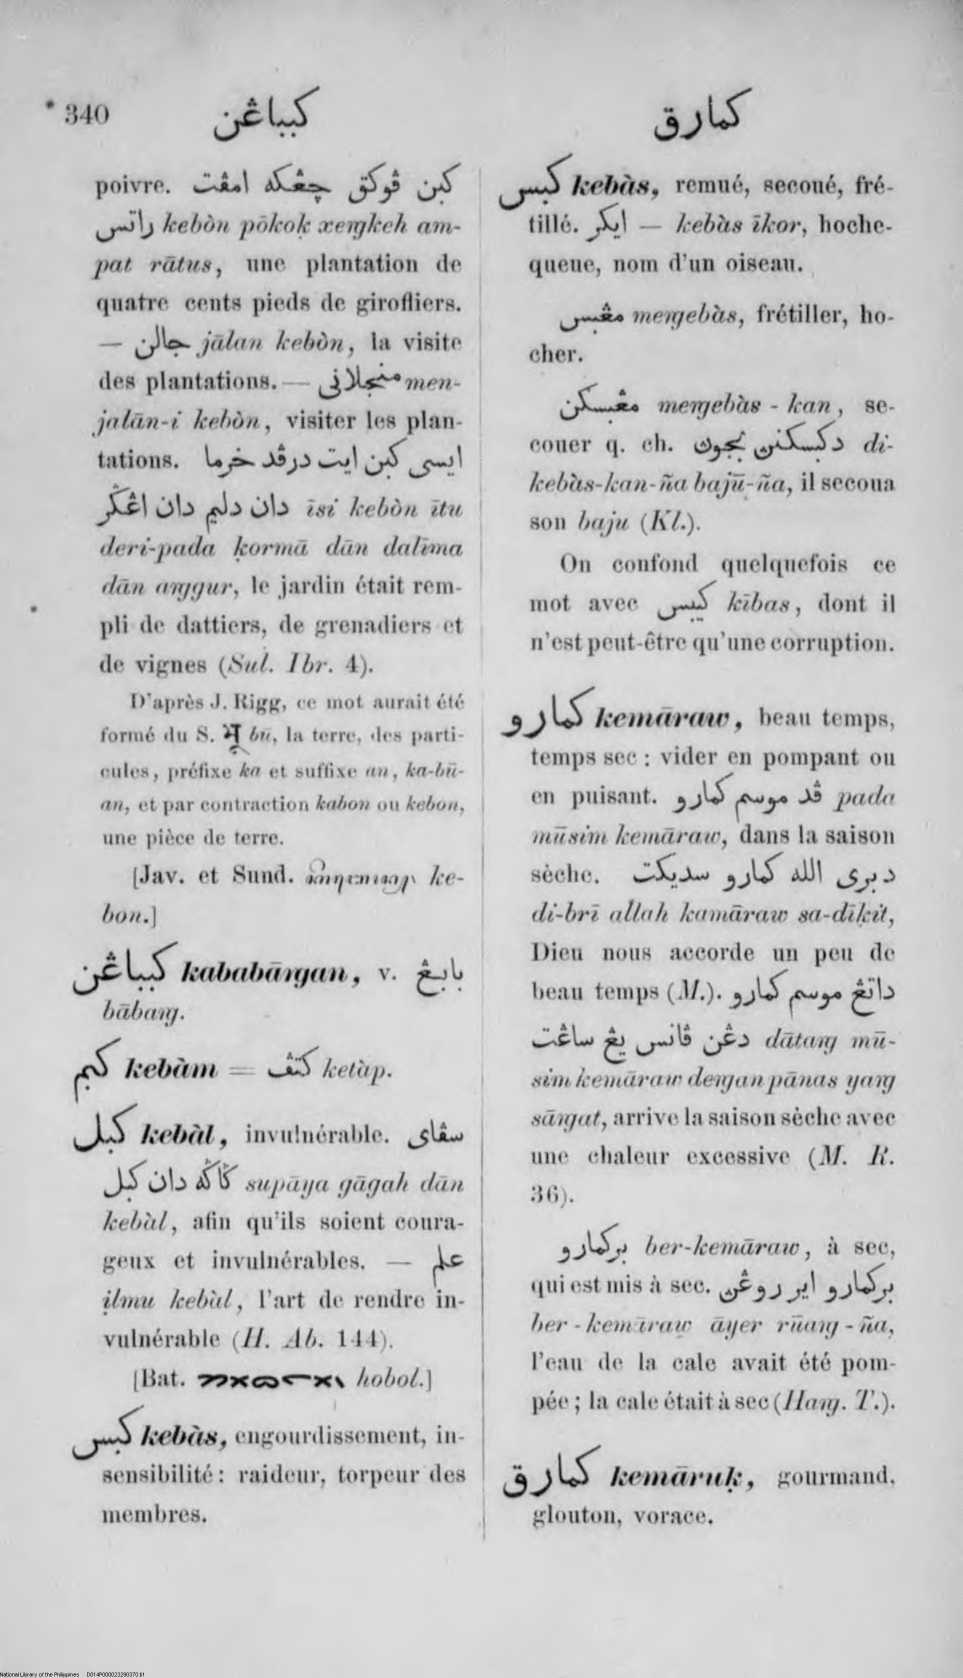 340 کبباڠن کمارق
poivre. کبن ڤوکق چڠکه امڤت
راتس kebòn pōkoḳ xeŋkeh am-
pat rātus, une plantation de
quatre cents pieds de girofliers.
— جالن jālan kebòn, la visite
des plantations. — منجلاني men-
jalān-i kebòn, visiter les plan-
tations. ايسي کبن ايت درڤد خرما
دان دليم دان اڠگر īsi kebòn ītu
deri-pada ḳormā dān dalīma
dān aŋgur, le jardin était rem-
pli de dattiers, de grenadiers et
de vignes (Sul. Ibr. 4).
D'après J. Rigg, ce mot aurait été
formé du S. भू bū, la terre, des parti-
cules, préfixe ka et suffixe an, ka-bū-
an, et par contraction kabon ou kebon,
une pièce de terre.
[Jav. et Sund. ke-
bon.]
کبباڠن kababāŋgan, v. بابڠ
bābaŋ.
کبم kebàm = کتڤ ketàp.
کبل kebàl, invulnérable. سڤاي
ݢاݢه دان کبل supāya gāgah dān
kebàl, afin qu'ils soient coura-
geux et invulnérables. — علم
ịlmu kebàl, l'art de rendre in-
vulnérable (H. Ab. 144).
[Bat. hobol.]
کبس kebàs, engourdissement, in-
sensibilité: raideur, torpeur des
membres.
کبس kebàs, remué, secoué, fré-
tillé. ايکر — kebàs īkor, hoche-
queue, nom d'un oiseau.
مڠبس meŋebàs, frétiller, ho-
cher.
مڠبسکن meŋebàs-kan, se-
couer q. ch. دکبسکنن بجوڽ di-
kebàs-kan-ña bajū-ña, il secoua
son baju (Kl.).
On confond quelquefois ce
mot avec کيبس kības, dont il
n'est peut-être qu'une corruption.
کمارو kemāraw, beau temps,
temps sec : vider en pompant ou
en puisant. ڤد موسم کمارو pada
mūsim kemāraw, dans la saison
sèche. دبري الله کمارو سديکت
di-brī allah kamāraw sa-dīkit,
Dieu nous accorde un peu de
beau temps (M.). داتڠ موسم کمارو
دڠن ڤانس يڠ ساڠت dātaŋ mū-
sim kemāraw deŋan pānas yaŋ
sāŋat, arrive la saison sèche avec
une chaleur excessive (M. R.
36).
برکمارو ber-kemāraw, à sec,
qui est mis à sec. برکمارو اير روڠن
ber-kemāraw āyer rūaŋ-ña,
l'eau de la cale avait été pom-
pée ; la cale était à sec (Haŋ. T.).
کمارق kemāruḳ, gourmand,
glouton, vorace.
National Library of the Philippines